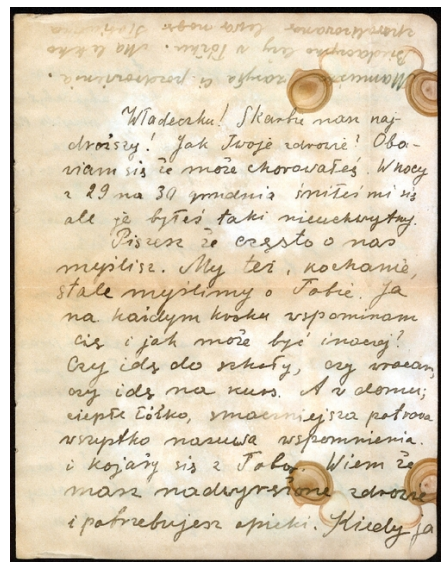 Mamusia zasyła Ci pozdrowienia.
Biedaczka leży w łóżku. Ma lekko
lewa noga
Władeczku! Skarbie nasz naj-
droższy! Jak Twoje zdrowie? Oba-
wiam się że może chorowałeś. W nocy
z 29 na 30 grudnia śniłeś mi się
ale że byłeś taki nieuchwytny.
Piszesz że często o nas
myślisz. My też, kochanie,
stale myślimy o Tobie. Ja
na każdym kroku wspominam
Cię i jak może być inaczej?
Czy idę do szkoły, czy wracam,
czy idę na kurs. A w domu;
ciepłe łóżko, smaczniejsza potrawa
wszystko nasuwa wspomnienia.
i kojarzy się z Tobą. Wiem że
masz nadwyrężone zdrowie
i potrzebujesz opieki. Kiedy ja